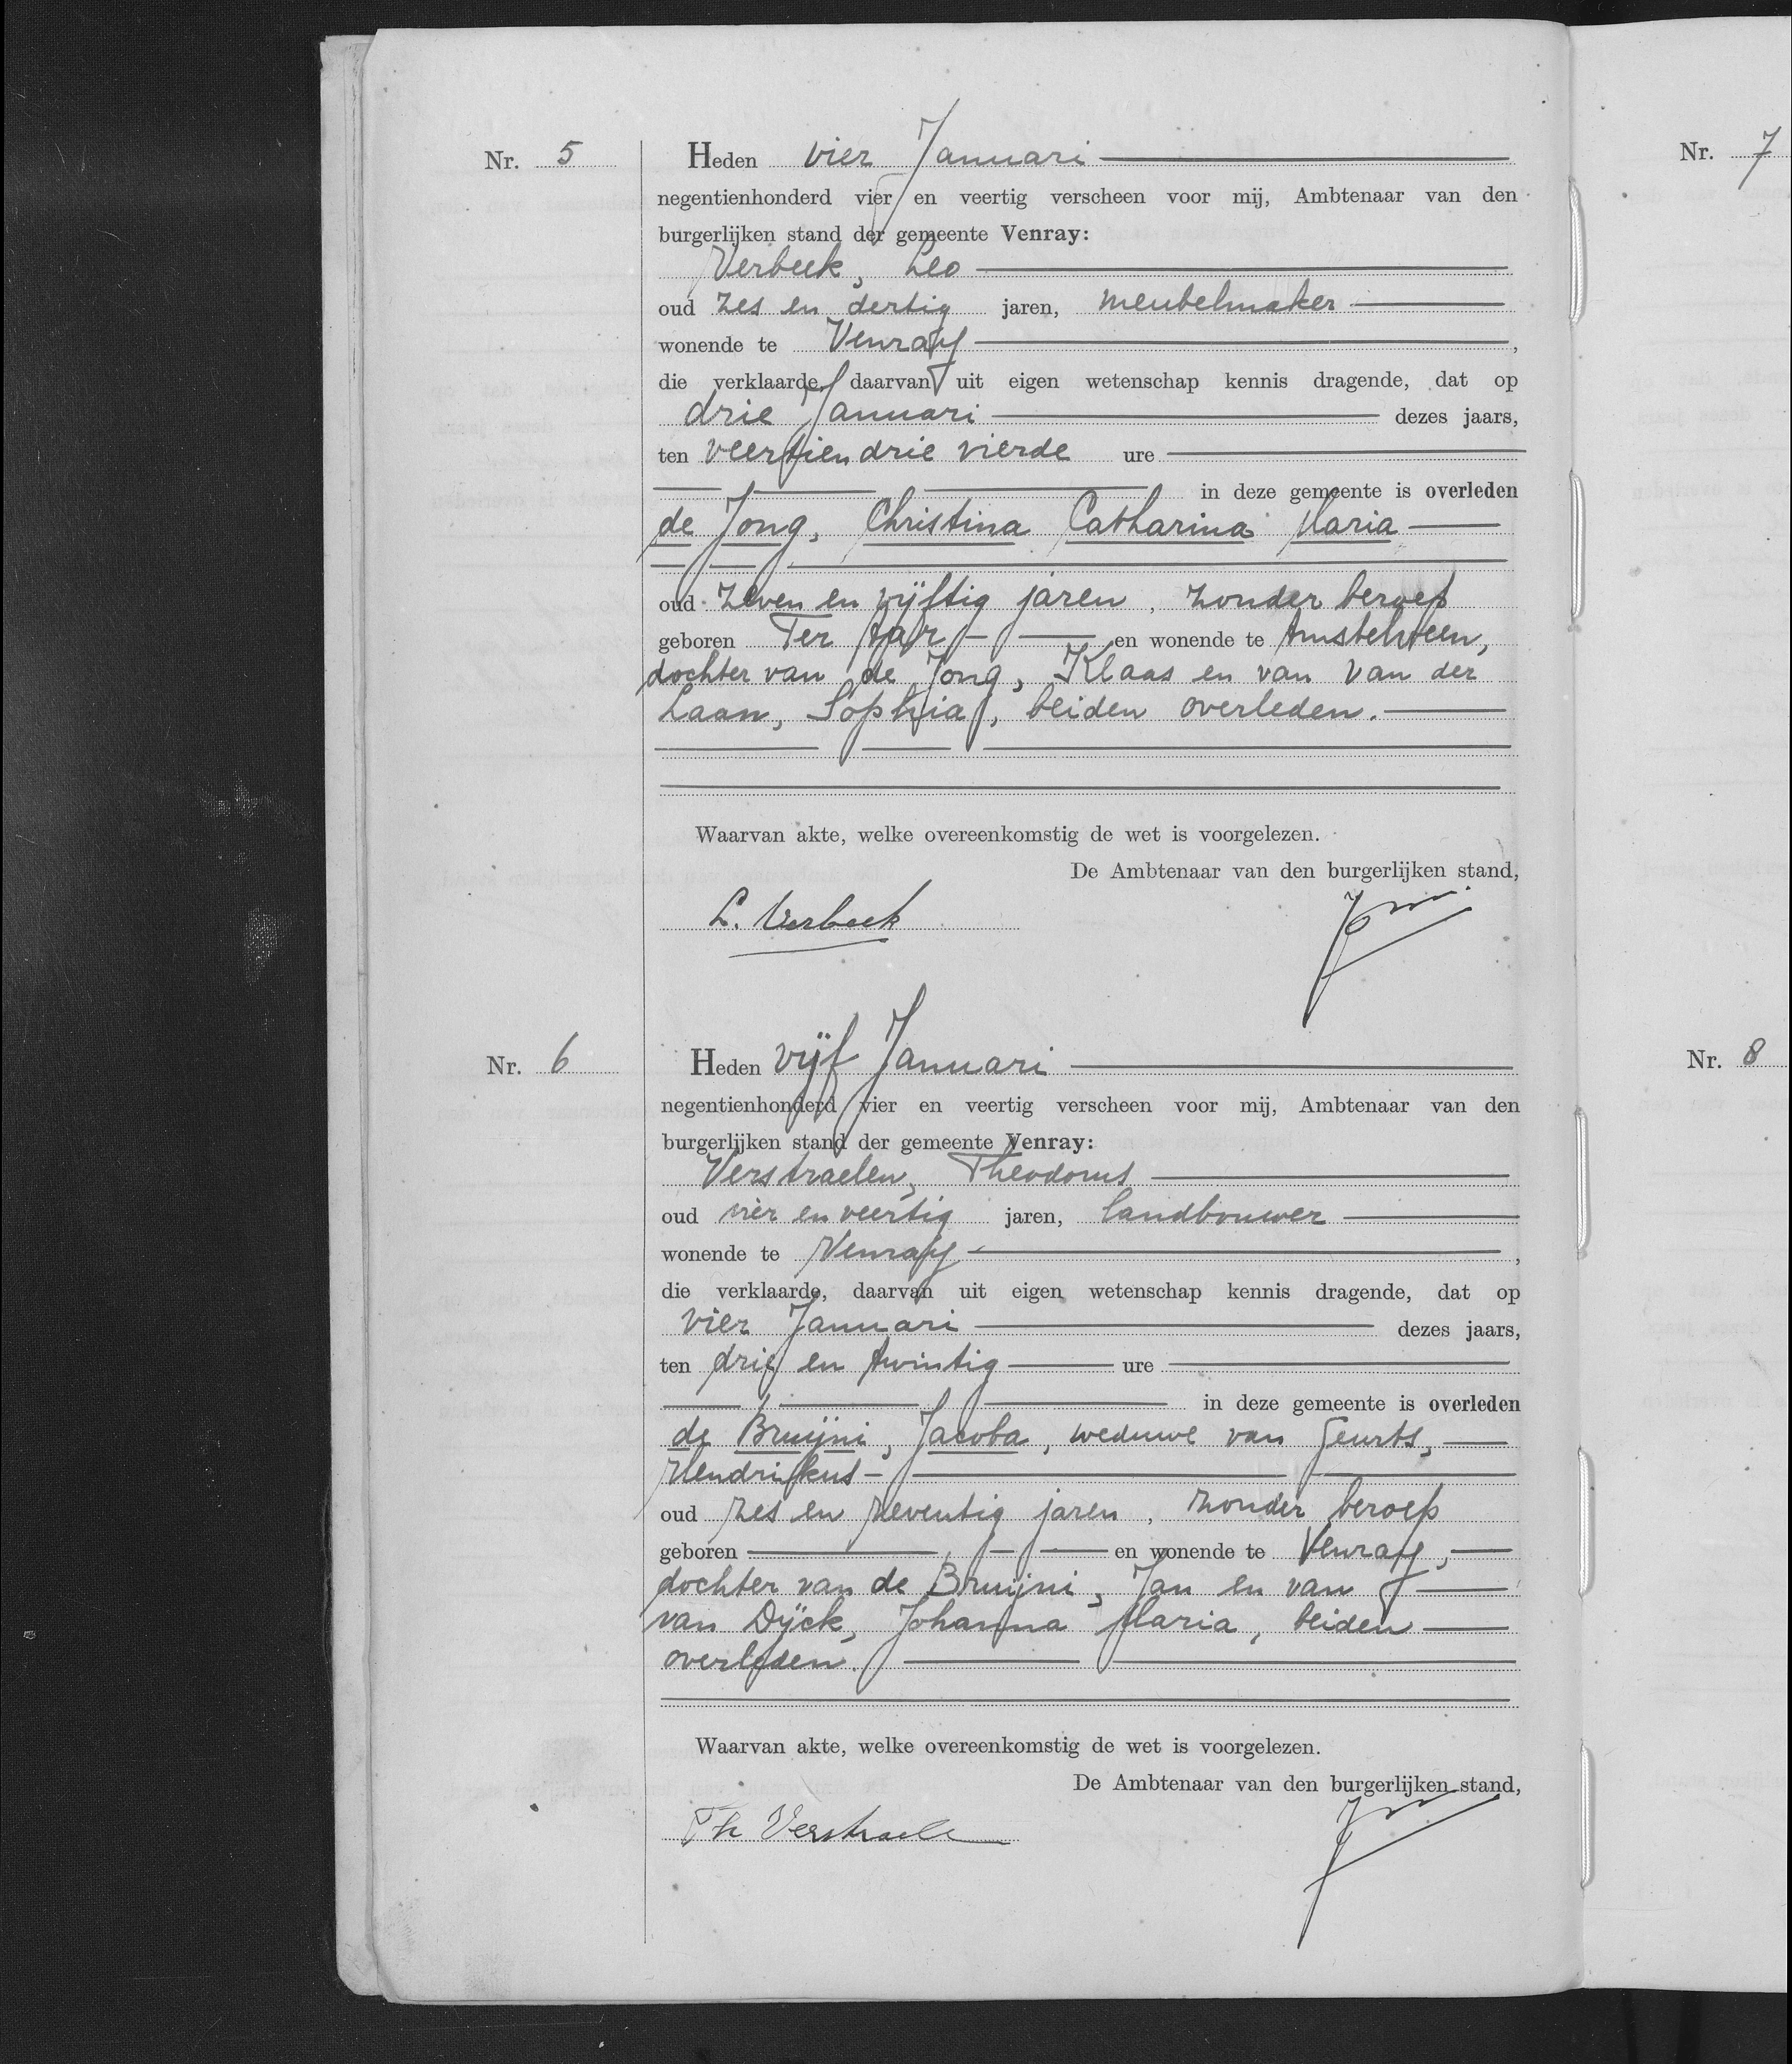 Nr. 5
Heden vier Januari
negentienhonderd vier en veertig verscheen voor mij, Ambtenaar van den
burgerlijken stand der gemeente Venray:
Verbeek, Leo
oud zes en dertig jaren, meubelmaker
wonende te Venray,
die verklaarde, daarvan uit eigen wetenschap kennis dragende, dat op
drie Januari dezes jaars,
ten veertien drie vierde ure
in deze gemeente is overleden
de Jong, Christina Catharina Maria
oud zeven en vijftig jaren, zonder beroep
geboren Ter Aar en wonende te Amstelveen,
dochter van de Jong, Klaas en van van der
Laan, Sophia, beiden overleden.
Waarvan akte, welke overeenkomstig de wet is voorgelezen.
De Ambtenaar van den burgerlijken stand,
L. Verbeek
Nr. 6
Heden vijf Januari
negentienhonderd vier en veertig verscheen voor mij, Ambtenaar van den
burgerlijken stand der gemeente Venray:
Verstraelen, Theodorus
oud vier en veertig jaren, landbouwer
wonende te Venray,
die verklaarde, daarvan uit eigen wetenschap kennis dragende, dat op
vier Januari dezes jaars,
ten drie en twintig ure
in deze gemeente is overleden
de Bruijni, Jacoba, weduwe van Geurts,
Hendrikus
oud zes en zeventig jaren, zonder beroep
geboren en wonende te Venray,
dochter van de Bruijni, Jan en van
van Dijck, Johanna Maria, beiden
overleden.
Waarvan akte, welke overeenkomstig de wet is voorgelezen.
De Ambtenaar van den burgerlijken stand,
Th Verstraele
Nr. 7
Nr. 8